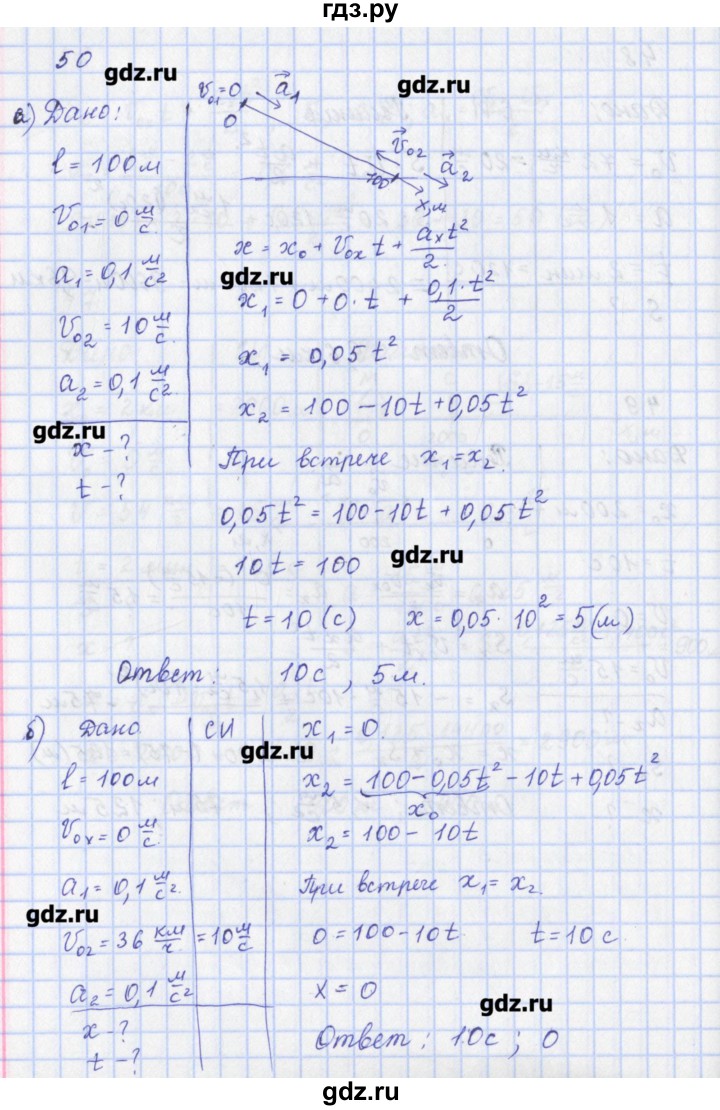 гдз.ру
50
gdz.ru
gdz.ru
а) Дано:
V₀₁=0 a⃗₁
0
V⃗₀₂ a⃗₂
100
x,м
l = 100 м
V₀₁ = 0 м/с
a₁ = 0,1 м/с²
V₀₂ = 10 м/с.
a₂ = 0,1 м/с²
gdz.ru
x - ?
t - ?
x = x₀ + V₀ₓt + aₓt²/2.
gdz.ru
x₁ = 0 + 0·t + 0,1·t²/2
x₁ = 0,05t²
x₂ = 100 - 10t + 0,05t²
При встрече x₁ = x₂.
0,05t² = 100 - 10t + 0,05t²
10t = 100 gdz.ru
t = 10 (с) x = 0,05 · 10² = 5 (м)
Ответ: 10 с, 5 м.
б) Дано СИ
l = 100 м
V₀ₓ = 0 м/с.
a₁ = 0,1 м/с².
gdz.ru
V₀₂ = 36 км/ч = 10 м/с
a₂ = 0,1 м/с²
x - ?
t - ?
x₁ = 0.
gdz.ru
x₂ = 100 - 0,05t² - 10t + 0,05t²
x₀
x₂ = 100 - 10t
При встрече x₁ = x₂.
0 = 100 - 10t. t = 10 с.
x = 0 gdz.ru
Ответ: 10 с; 0
gdz.ru